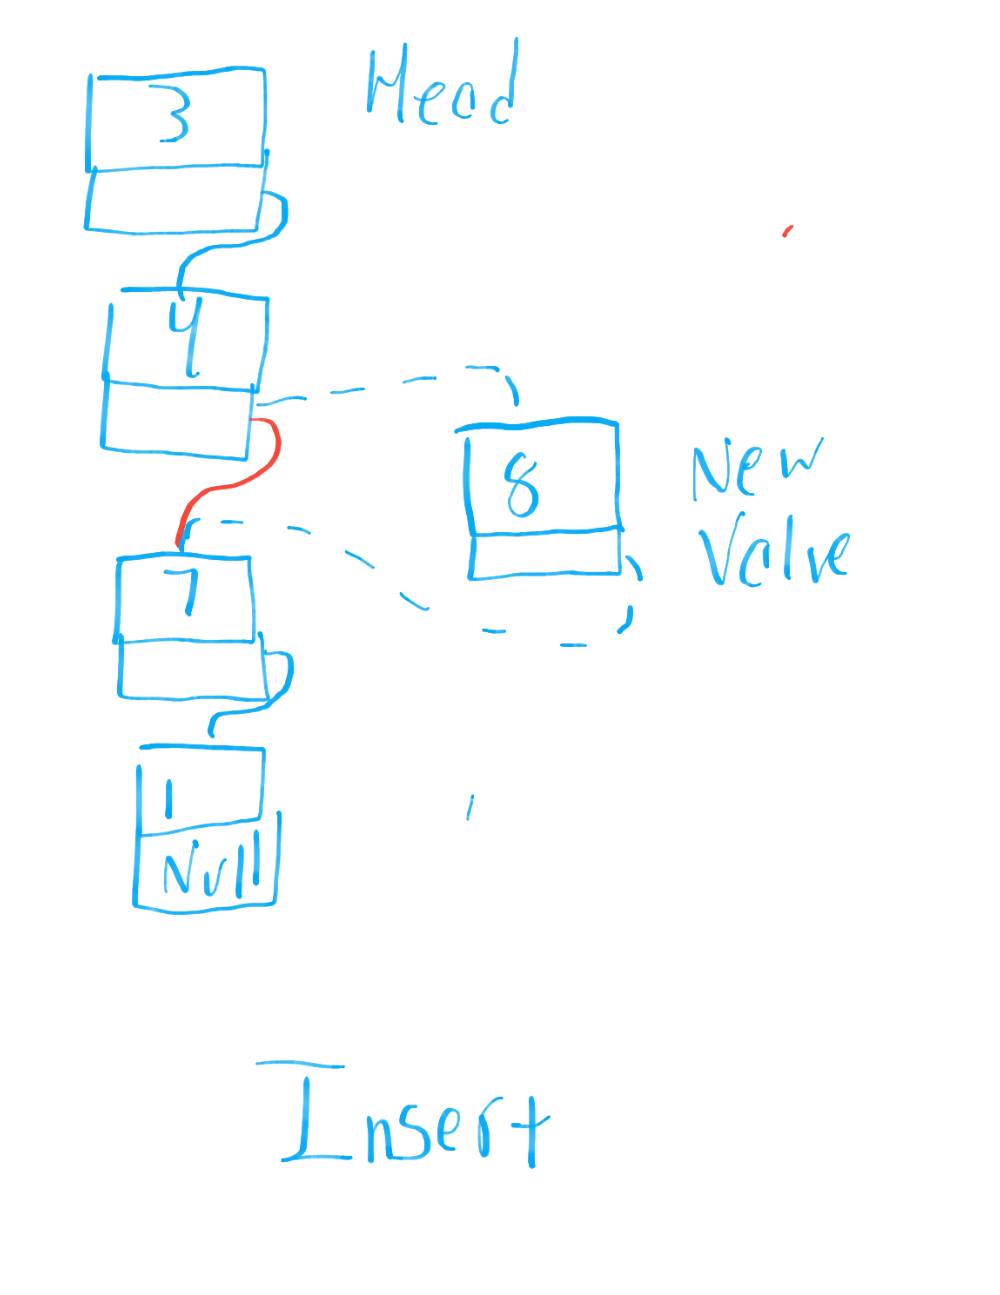 3
Head
4
8
New
Value
7
1
Null
Insert